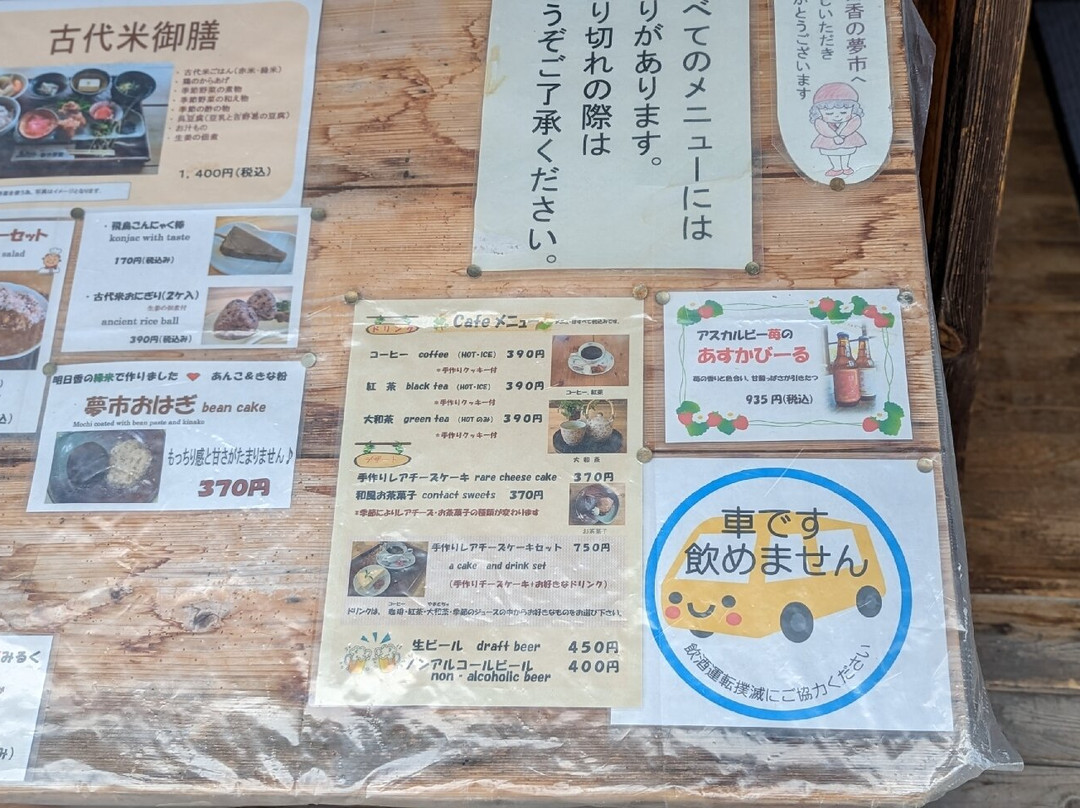 古代米御膳
・古代米ごはん(赤米・緑米)
・鶏のからあげ
・季節野菜の煮物
・季節野菜の和え物
・季節の酢の物
・呉豆腐(豆乳と吉野葛の豆腐)
・お汁もの
・生姜の佃煮
1,400円(税込)
ーセット
salad
・飛鳥こんにゃく
konjac with taste
170円(税込み)
・古代米おにぎり(2ケ入)
生姜の佃煮付
ancient rice ball
390円(税込み)
明日香の緑米で作りました ❤ あんこ&きな粉
夢市おはぎ bean cake
Mochi coated with bean paste and kinako
もっちり感と甘さがたまりません♪
370円
みるく
べてのメニューには
りがあります。
り切れの際は
うぞご了承ください。
香の夢市へ
いただき
がとうございます
ドリンク
Cafe メニュー
コーヒー coffee (HOT・ICE) 390円
*手作りクッキー付
コーヒー、紅茶
紅 茶 black tea (HOT・ICE) 390円
*手作りクッキー付
大和茶 green tea (HOT のみ) 390円
*手作りクッキー付
大和茶
デザート
手作りレアチーズケーキ rare cheese cake 370円
和風お茶菓子 contact sweets 370円
*季節によりレアチーズ・お茶菓子の種類が変わります
お茶菓子
手作りレアチーズケーキセット 750円
a cake and drink set
(手作りチーズケーキ+お好きなドリンク)
ドリンクは、珈琲・紅茶・大和茶・季節のジュースの中からお好きなものをお選び下さい。
生ビール draft beer 450円
ノンアルコールビール 400円
non - alcoholic beer
アスカルビー苺の
あすかびーる
苺の香りと色合い、甘酸っぱさが引きたつ
935円(税込)
車です
飲めません
飲酒運転撲滅にご協力ください